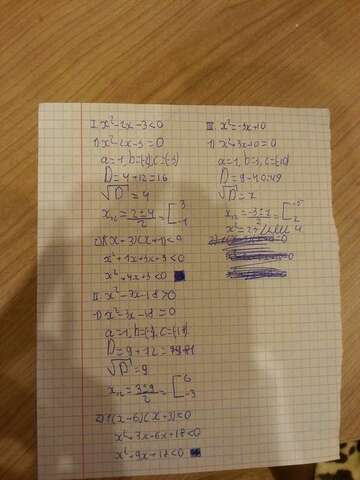 I. x²-2x-3<0
1) x²-2x-3=0
a=1, b=(-2), c=(-3)
D=4+12=16
√D=4
x₁,₂=2±4/2=[3 -1
(x+3)(x+1)<0
x²+1x+3x+3<0
x²+4x+3<0
II. x²-3x-18>0
1) x²-3x-18=0
a=1, b=(-3), c=(-18)
D=9+72=81
√D=9
x₁,₂=3±9/2=[6 -3
2) (x-6)(x+3)<0
x²+3x-6x+18<0
x²+9x+18<0
III. x²=-3x+10
1) x²+3x-10=0
a=1, b=3, c=(-10)
D=9-40=49
√D=7
x₁,₂=-3±7/2=[-5 2
x²=25 или 4